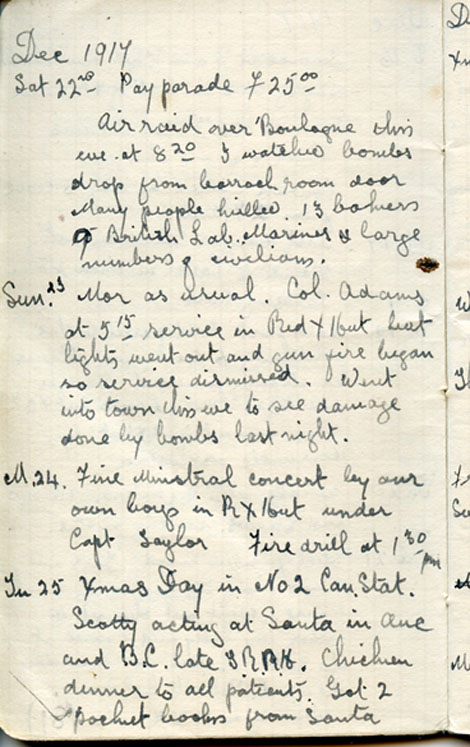 Dec 1917
Sat 22nd Pay parade F 25 00
Air raid over Boulogne this
eve at 8 20 I watched bombs
drop from barrack room door
Many people killed. 13 bakers
9 British Lab. Marines & large
numbers of civilians.
Sun. 23 Mor as usual. Col. Adams
at 5 15 service in Red X Hut but
lights went out and gun fire began
so service dismissed. Went
into town this eve to see damage
done by bombs last night.
M. 24. Fine Ministral concert by our
own boys in RX Hut under
Capt Saylor Fire drill at 1 30 pm
Tu 25 Xmas Day in No 2 Can. Stat.
Scotty acting at Santa in
and B.C. late Chicken
dinner to all patients. Got 2
pocket books from Santa